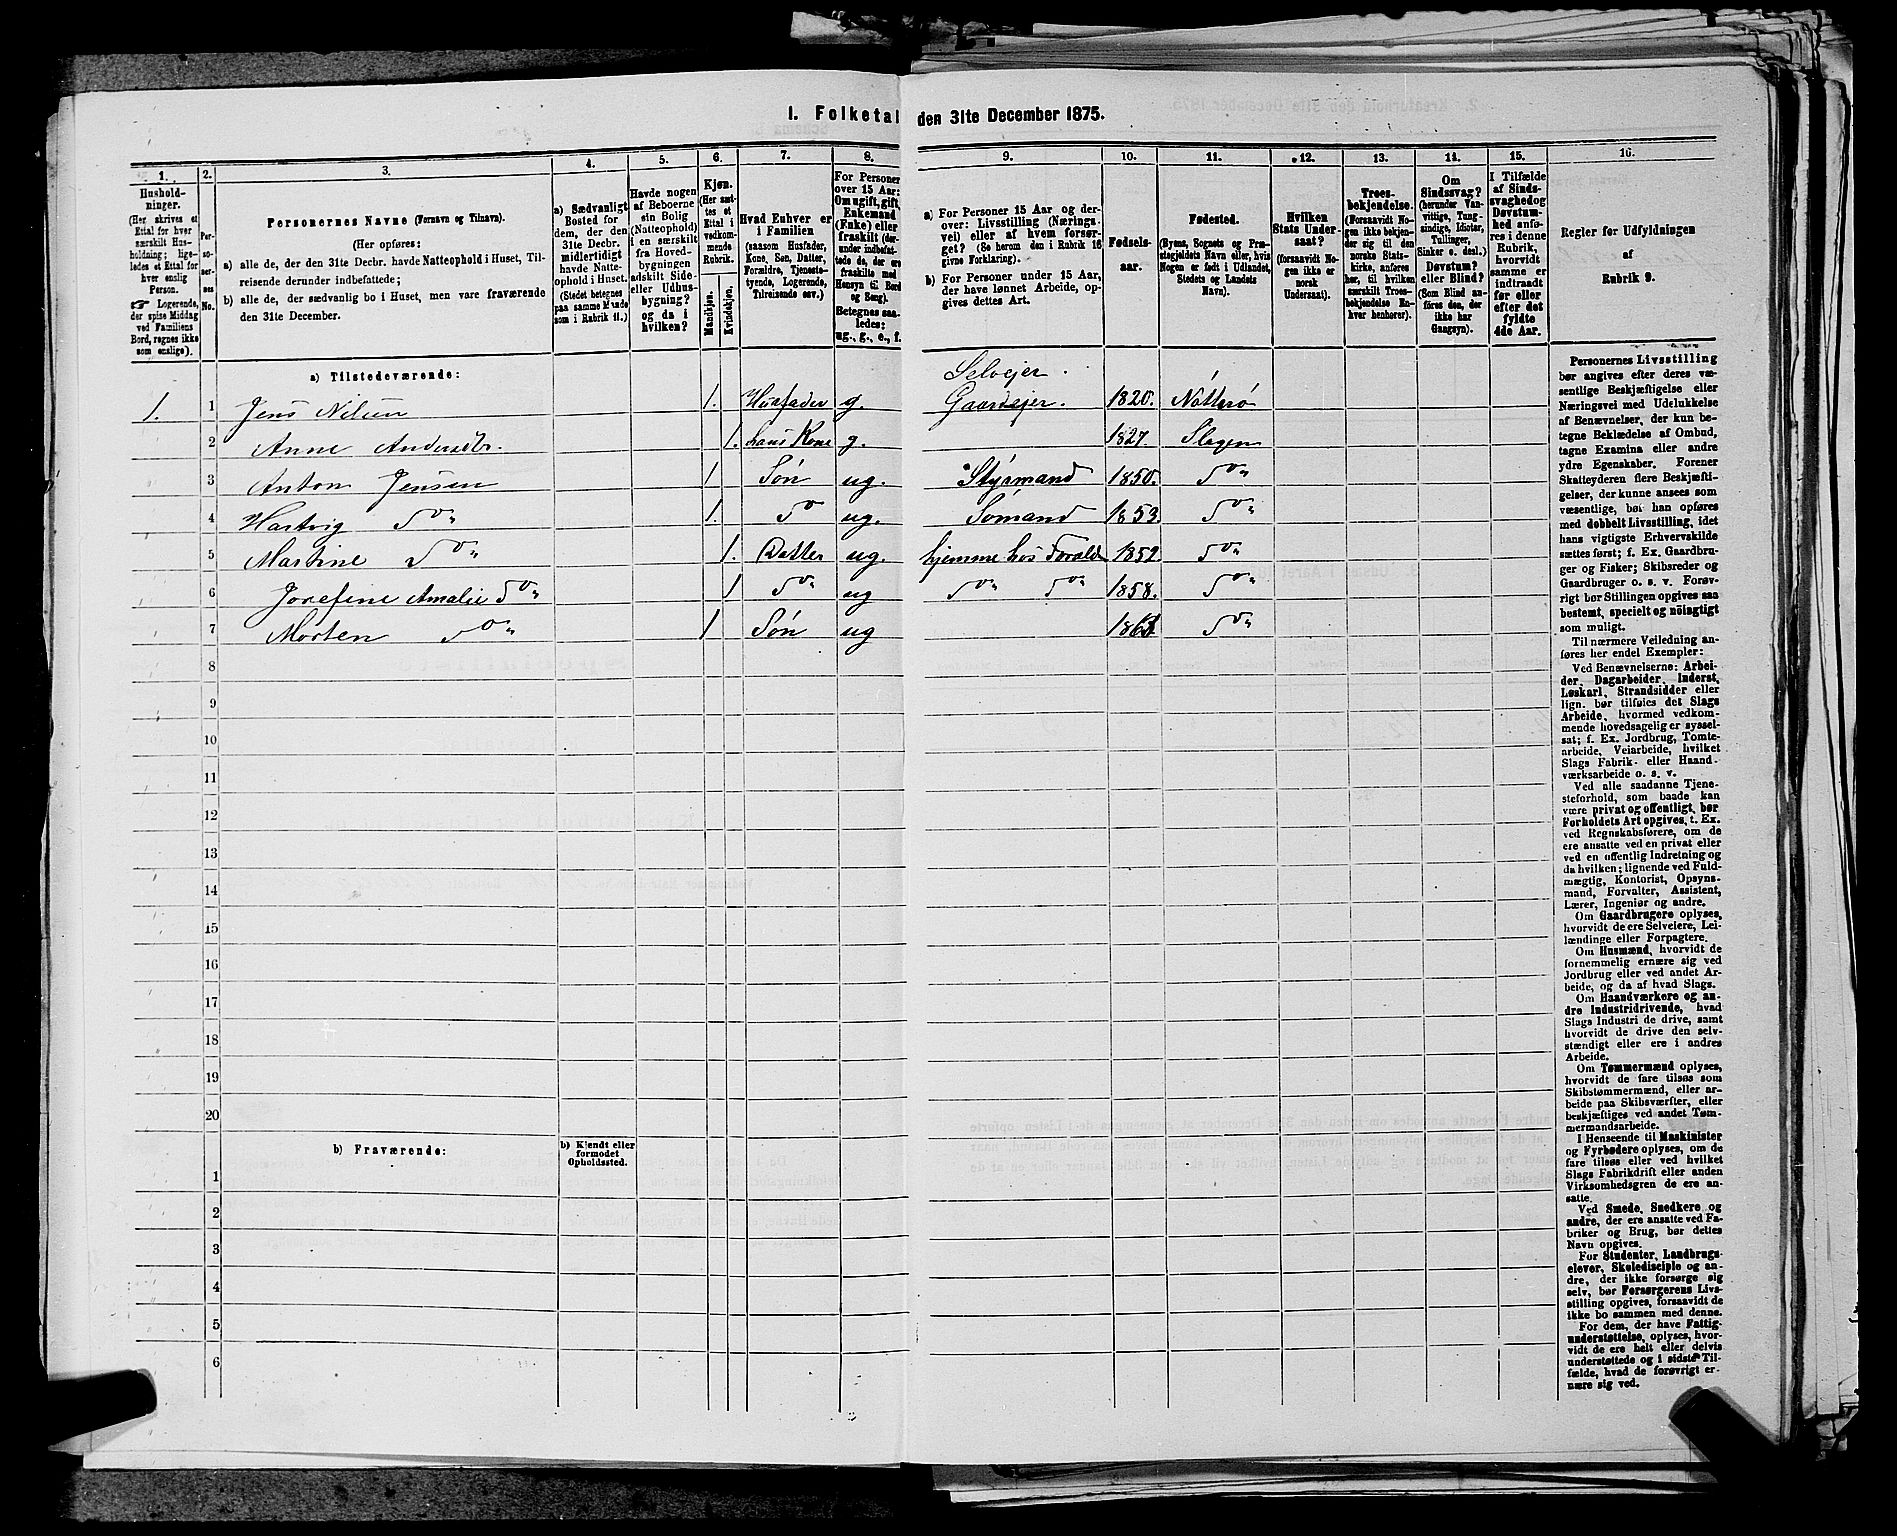 1. Folketal den 31te December 1875.
1. 2. 3. 4. 5. 6. 7. 8. 9. 10. 11. 12. 13. 14. 15. 16.
Hushold-
ninger.
(Her skrives et
Ettal for hver
særskilt Hus-
holdning; lige-
ledes et Ettal for
hver enslig
Person.
☞ Logerende,
der spise Middag
ved Familiens
Bord, regnes ikke
som enslige).
Per-
so-
ner-
nes
No.
Personernes Navne (Fornavn og Tilnavn).
(Her opføres:
a) alle de, der den 31te Decbr. havde Natteophold i Huset, Til-
reisende derunder indbefattede;
b) alle de, der sædvanlig bo i Huset, men vare fraværende
den 31te December.
a) Sædvanligt
Bosted for
dem, der den
31te Decbr.
midlertidigt
havde Natte-
ophold i Huset.
(Stedet betegnes
paa samme Maade
som i Rubrik 11.)
Havde nogen
af Beboerne
sin Bolig
(Natteophold)
i en særskilt
fra Hoved-
bygningen
adskilt Side-
eller Udhus-
bygning?
og da i
hvilken?
Kjøn.
(Her sæt-
tes et
Ettal i
vedkom-
mende
Rubrik.
Mandkjøn.
Kvindekjøn.
Hvad Enhver er
i Familien
(saasom Husfader,
Kone, Søn, Datter,
Forældre, Tjeneste-
tyende, Logerende,
Tilreisende osv.)
For Personer
over 15 Aar:
Om ugift, gift,
Enkemand
(Enke) eller
fraskilt (der-
under indbefat-
tede de, der ere
fraskilte med
Hensyn til Bord
og Seng).
Betegnes saa-
ledes:
ug., g., e., f.
a) For Personer 15 Aar og der-
over: Livsstilling (Nærings-
vei) eller af hvem forsør-
get? (Se herom den i Rubrik 16
givne Forklaring).
b) For Personer under 15 Aar,
der have lønnet Arbeide, op-
gives dettes Art.
Fødsels-
aar.
Fødested.
(Byens, Sognets og Præ-
stegjeldets Navn eller, hvis
Nogen er født i Udlandet,
Stedets og Landets
Navn).
Hvilken
Stats Under-
saat?
(forsaavidt No-
gen ikke er
norsk
Undersaat).
Troes-
bekjendelse.
(Forsaavidt No-
gen ikke bekjen-
der sig til den
norske Stats-
kirke, anføres
her, til hvilken
særskilt Troes-
bekjendelse En-
hver henhører).
Om
Sindssvag?
(herunder Van-
vittige, Tung-
sindige, Idioter,
Tullinger,
Sinker o. desl.)
Døvstum?
eller Blind?
(Som Blind an-
føres den, der
ikke har
Gangsyn).
I Tilfælde
af Sinds-
svaghed og
Døvstum-
hed anfø-
res i denne
Rubrik,
hvorvidt
samme er
indtraadt
før eller
efter det
fyldte
4de Aar.
Regler for Udfyldningen
af
Rubrik 9.
a) Tilstedeværende:
Selvejer.
1. 1 Jens Nilsen 1. Husfader g. Gaardejer. 1820. Nøtterø
2 Anne Andersdtr. 1. hans Kone g. 1827. Slagen
3 Anton Jensen 1 Søn ug. Styrmand 1850. Do
4 Hartvig Do 1. Do ug. Sømand 1853. Do
5 Martine Do 1. Datter ug. hjemme hos Foræld Do
6 Josefine Amalie Do 1 Do ug Do Do 1858. Do
7 Morten Do 1 Søn ug Do
8
9
10
11
12
13
14
15
16
17
18
19
20
b) Fraværende:
b) Kjendt eller
formodet
Opholdssted.
1
2
3
4
5
6
Personernes Livsstilling
bør angives efter deres væ-
sentlige Beskjæftigelse eller
Næringsvei med Udelukkelse
af Benævnelser, der kun be-
tegne Beklædelse af Ombud,
tagne Examina eller andre
ydre Egenskaber. Forener
Skatteyderen flere Beskjæfti-
gelser, der kunne ansees som
væsentlige, bør han opføres
med dobbelt Livsstilling, idet
hans vigtigste Erhvervskilde
sættes først; f. Ex. Gaardbru-
ger og Fisker; Skibsreder og
Gaardbruger o. s. v. Forøv-
rigt bør Stillingen opgives saa
bestemt, specielt og nöiagtigt
som muligt.
Til nærmere Veiledning an-
føres her endel Exempler:
Ved Benævnelserne: Arbei-
der, Dagarbeider, Inderst,
Løskarl, Strandsidder eller
lign. bør tilføies det Slags
Arbeide, hvormed vedkom-
mende hovedsagelig er syssel-
sat; f. Ex. Jordbrug, Tomte-
arbeide, Veiarbeide, hvilket
Slags Fabrik- eller Haand-
værksarbeide o. s. v.
Ved alle saadanne Tjene-
steforhold, som baade kan
være privat og offentligt, bør
Forholdets Art opgives, t. Ex.
ved Regnskabsførere, om de
ere ansatte ved en privat eller
ved en offentlig Indretning og
da hvilken; lignende ved Fuld-
mægtig, Kontorist, Opsyns-
mand, Forvalter, Assistent,
Lærer, Ingeniør og andre.
Om Gaardbrugere oplyses,
hvorvidt de ere Selveiere, Lei-
lændinge eller Forpagtere.
Om Husmænd, hvorvidt de
fornemmelig ernære sig ved
Jordbrug eller ved andet Ar-
beide, og da af hvad Slags.
Om Haandværkere og an-
dre Industridrivende, hvad
Slags Industri de drive, samt
hvorvidt de drive den selv-
stændigt eller ere i andres
Arbeide.
Om Tømmermænd oplyses,
hvorvidt de fare tilsøs som
Skibstømmermænd, eller ar-
beide paa Skibsværfter, eller
beskjæftiges ved andet Tøm-
mermandsarbeide.
I Henseende til Maskinister
og Fyrbødere oplyses, om de
fare tilsøs eller ved hvilket
Slags Fabrikdrift eller anden
Virksomhedsgren de ere an-
satte.
Ved Smede, Snedkere og
andre, der ere ansatte ved Fa-
briker og Brug, bør dettes
Navn opgives.
For Studenter, Landbrugs-
elever, Skoledisciple og an-
dre, der ikke forsørge sig
selv, bør Forsørgerens Livs-
stilling opgives, forsaavidt de
ikke bo sammen med denne.
For dem, der have Fattig-
understøttelse, oplyses, hvor-
vidt de ere helt eller delvis
understøttede og i sidste Til-
fælde, hvad de forøvrigt er-
nære sig ved.